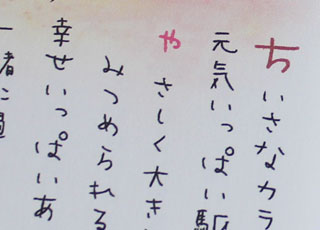 ちいさなカラ
元気いっぱい駆
やさしく大き
みつめられる
幸せいっぱいあ
一者に過